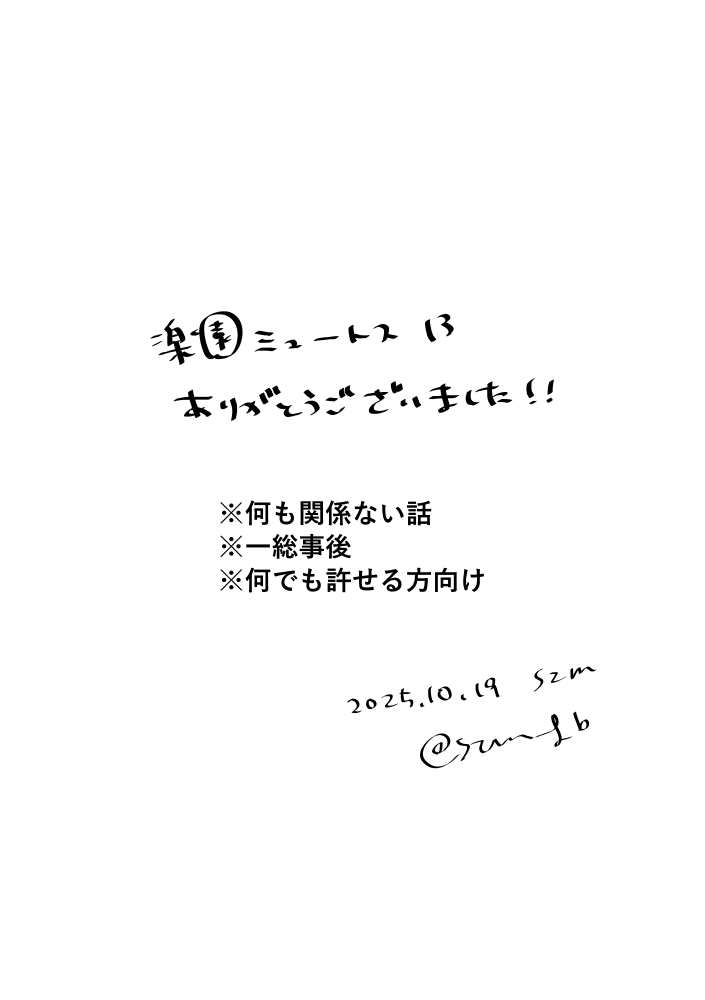 楽園ミュートス 13
ありがとうございました!!
※何も関係ない話
※一総事後
※何でも許せる方向け
2025.10.19 szm